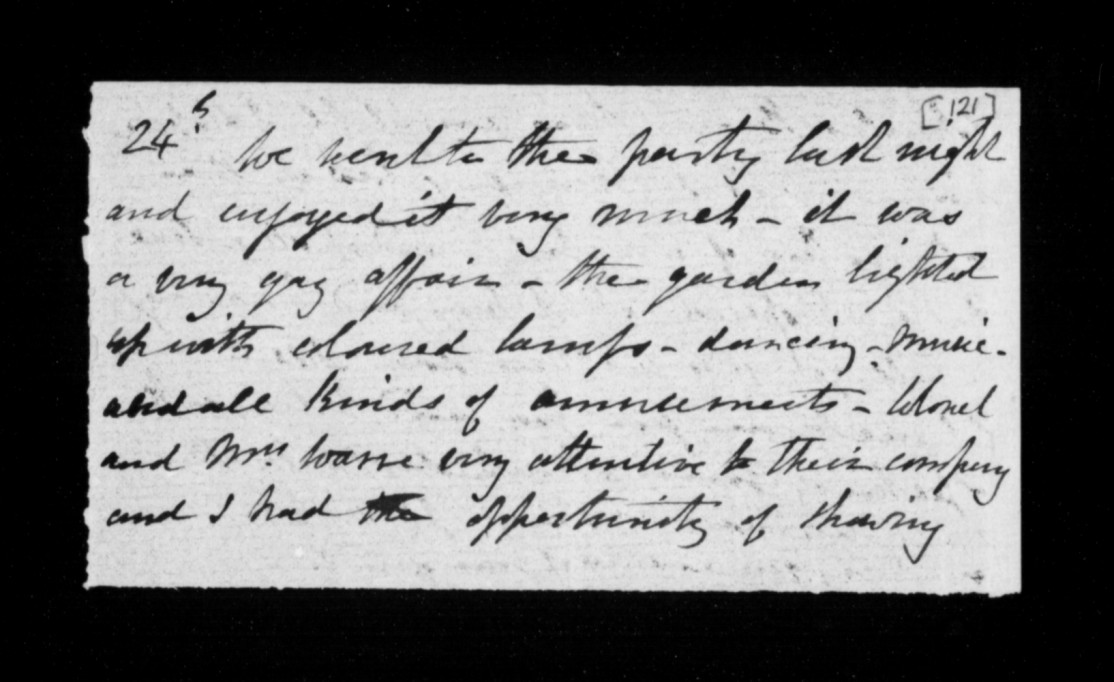 [121]
24th We went to the party last night
and enjoyed it very much - it was
a very gay affair - the garden lighted
up with coloured lamps - dancing - music -
and all kinds of amusements - Colonel
and Mrs Warre very attentive to their company
and I had the opportunity of showing